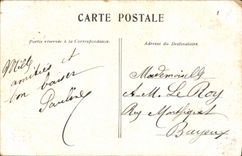 CARTE POSTALE
Partie réservée à la Correspondance.
Adresse du Destinataire
Mille
amitiés et
bon baiser
Pauline
Mademoiselle
A. M. Le Roy
Rue
Bayeux